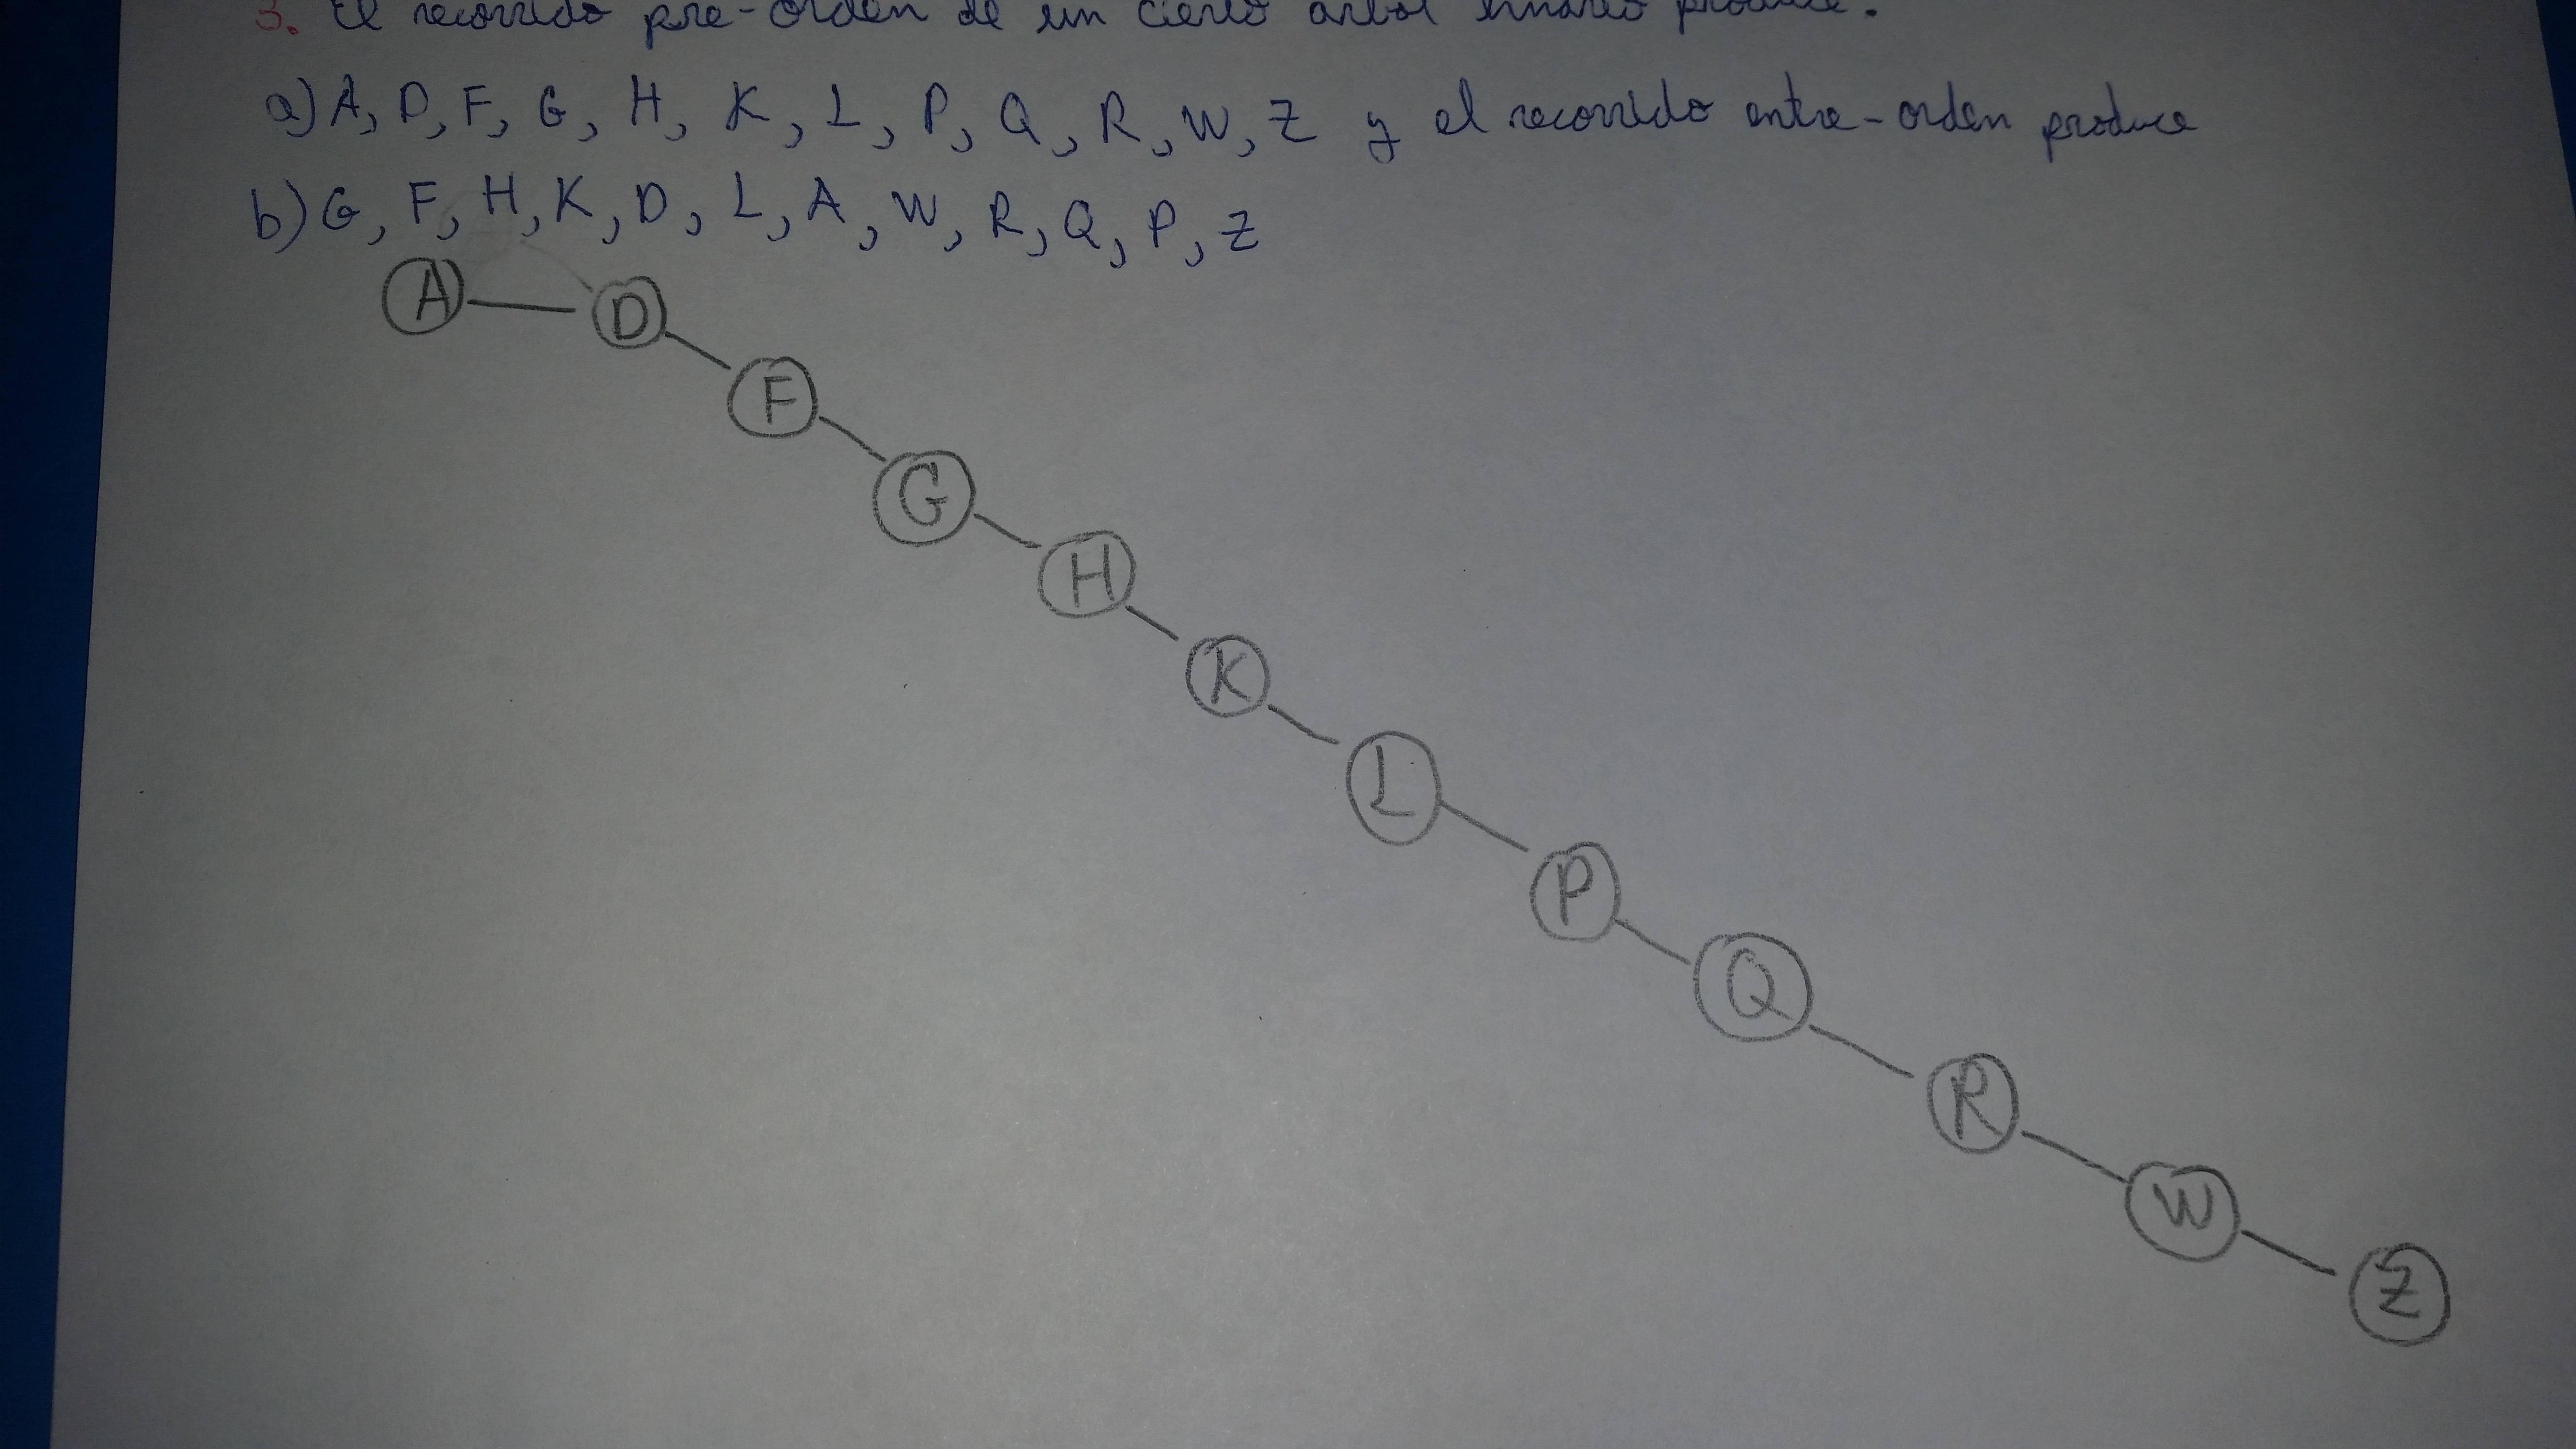 3. El recorrido pre-orden de un cierto arbol binario produce:
a) A, D, F, G, H, K, L, P, Q, R, W, Z y el recorrido entre-orden produce
b) G, F, H, K, D, L, A, W, R, Q, P, Z
A
D
F
G
H
K
L
P
Q
R
W
Z